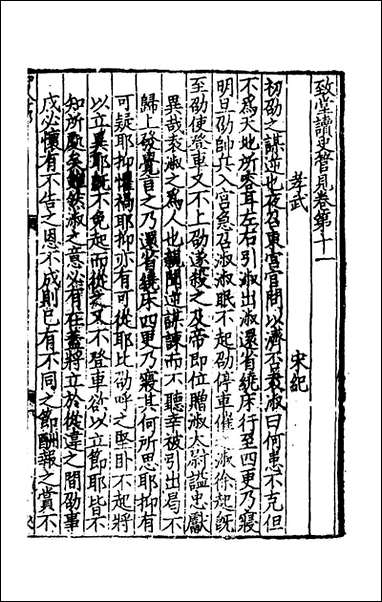 致堂讀史管見卷第十一
孝武　宋紀
初劭之謀逆也夜召東宮官問以濟否袁淑曰何患不克但
不爲天地所容耳左右引淑出淑還省繞床行至四更乃寢
明旦劭帥共入宮急召淑淑眠不起劭停車催之淑徐起既
至劭使登車又不上劭遂殺之及帝即位贈淑太尉諡忠獻
異哉袁淑之爲人也親聞逆謀諫而不聽幸被引出局不
歸上發覺目之乃還省繞床四更乃寢其何所思耶抑有
可疑耶抑懼禍耶抑亦有可從耶比劭呼之堅卧不起將
以立異耶既不免起而從之又不登車欲以立節耶皆不
知所處矣雖然淑之意必有在蓋將立於從違之間劭事
成必懷有不告之恩不成則已有不同之節酬報之賞不